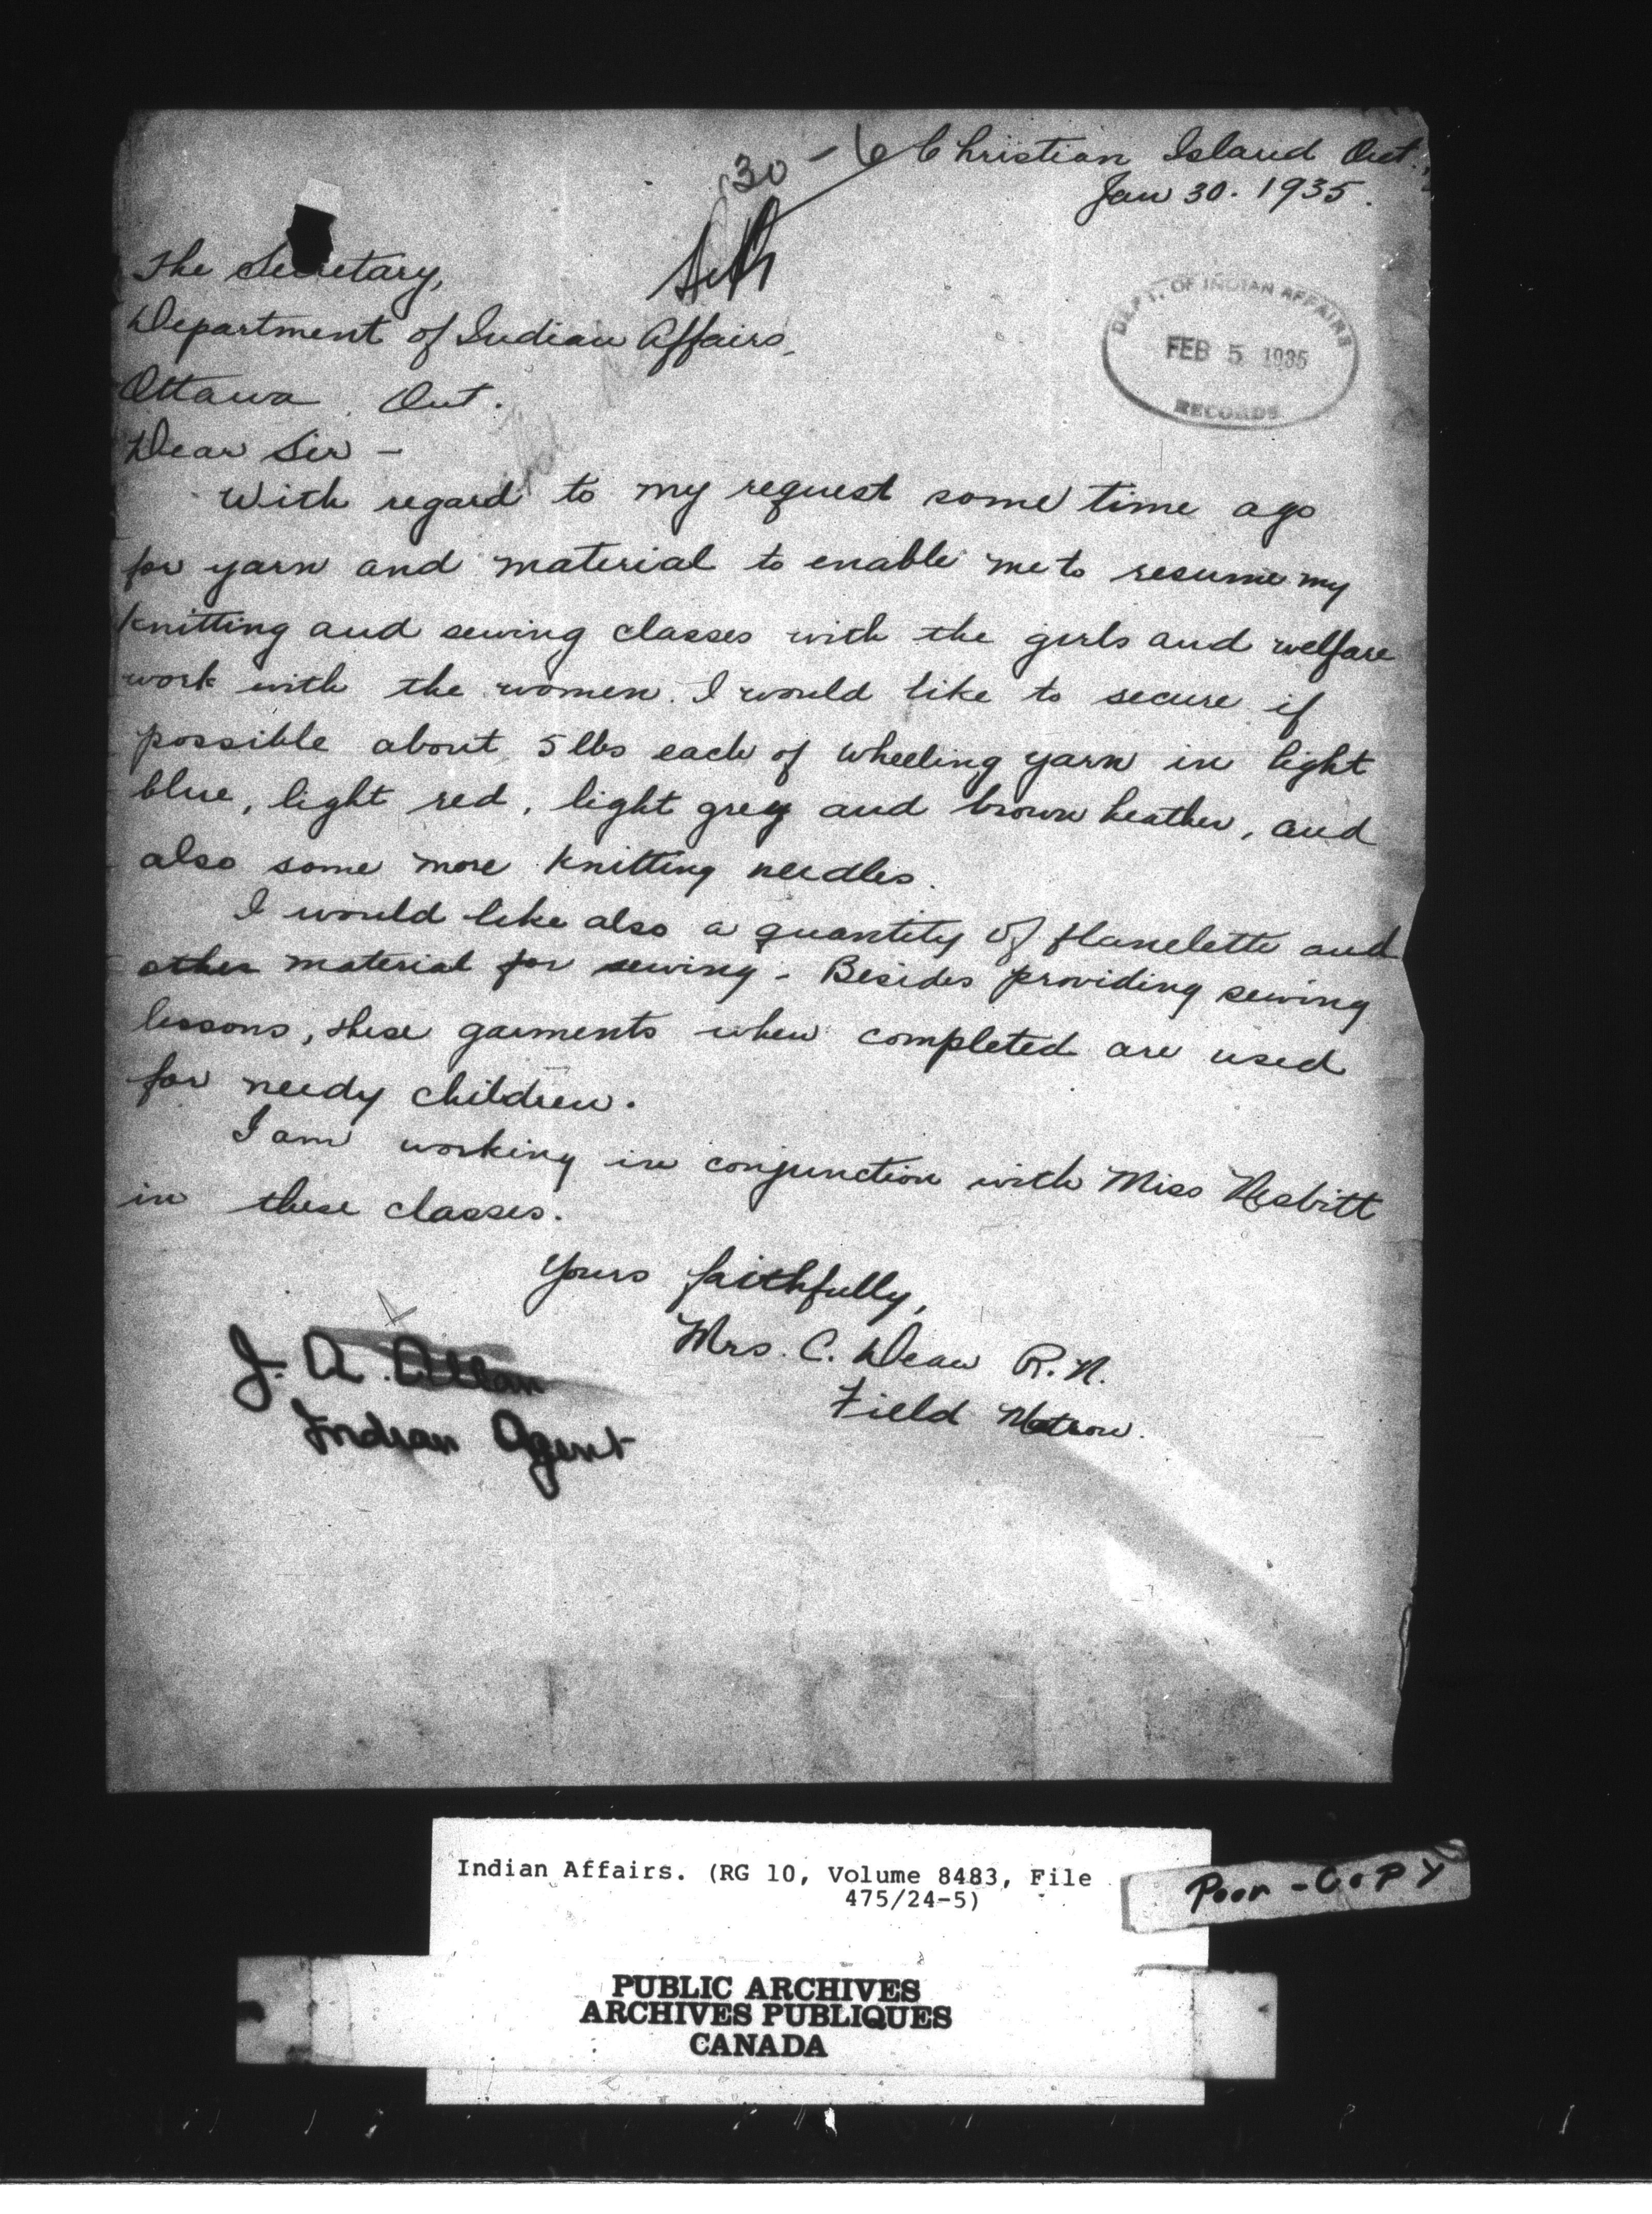 30-6
Christian Island Ont.
Jan 30. 1935.
The Secretary,
Department of Indian Affairs,
Ottawa Ont.
DEPT. OF INDIAN AFFAIRS
FEB 5 1935
RECORDS
Dear Sir -
With regard to my request some time ago
for yarn and material to enable me to resume my
knitting and sewing classes with the girls and welfare
work with the women. I would like to secure if
possible about 5 lbs each of wheeling yarn in light
blue, light red, light grey and brown heather, and
also some more knitting needles.
I would like also a quantity of flanelette and
other material for sewing - Besides providing sewing
lessons, these garments when completed are used
for needy children.
I am working in conjunction with Miss Nesbitt
in these classes.
Yours faithfully,
Mrs. C. Dean R.N.
Field Matron.
J. A. Allan
Indian Agent
Indian Affairs. (RG 10, Volume 8483, File
475/24-5)
Poor-Copy
PUBLIC ARCHIVES
ARCHIVES PUBLIQUES
CANADA